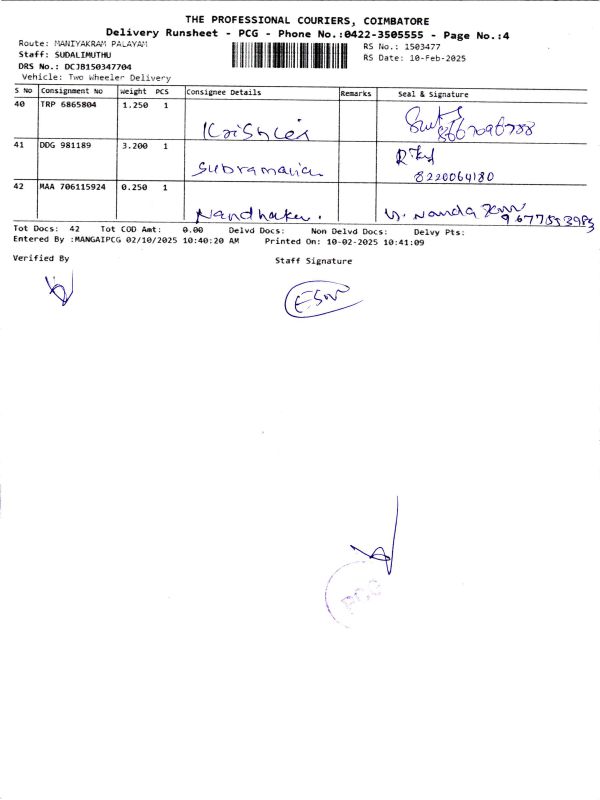 THE PROFESSIONAL COURIERS, COIMBATORE
Delivery Runsheet - PCG - Phone No.:0422-3505555 - Page No.:4
Route: MANIYAKRAM PALAYAM
RS No.: 1503477
Staff: SUDALIMUTHU
RS Date: 10-Feb-2025
DRS No.: DCJB150347704
Vehicle: Two Wheeler Delivery
S No Consignment No Weight PCS Consignee Details Remarks Seal & Signature
40 TRP 6865804 1.250 1
8667096788
41 DDG 981189 3.200 1
Subramanian
8220064180
42 MAA 706115924 0.250 1
Nandhaku. N. Nanda Kum
9677553983
Tot Docs: 42 Tot COD Amt: 0.00 Delvd Docs: Non Delvd Docs: Delvy Pts:
Entered By :MANGAIPCG 02/10/2025 10:40:20 AM Printed On: 10-02-2025 10:41:09
Verified By Staff Signature
ESM
PCG